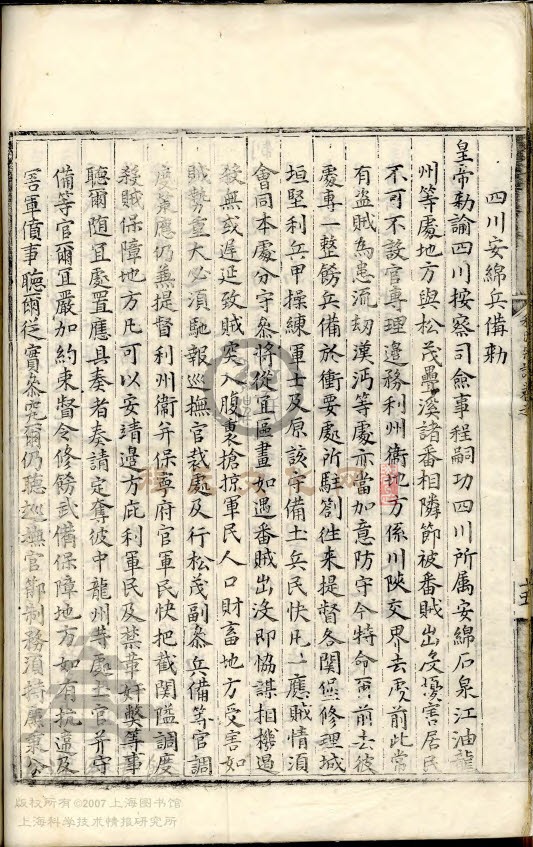 四川安綿兵備勅
皇帝勅諭四川按察司僉事程嗣功四川所属安綿石泉江油龍
州等處地方與松茂疊溪諸番相隣節被番賊出没擾害居民
不可不設官專理邉務利州衛地方係川陝交界去處前此常
有盗賊為患流刼漢沔等處亦當加意防守今特命爾前去彼
處專一整飭兵備於衝要處所駐劄徃来提督各関堡修理城
垣堅利兵甲操練軍士及原該守備土兵民快凡一應賊情須
會同本處分守叅將從冝區畫如遇番賊出没即恊謀相機遏
殺無或遲延致賊突入腹裏搶掠軍民人口財畜地方受害如
賊勢重大必須馳報巡撫官裁處及行松茂副叅兵備等官調
度策應仍兼提督利州衛并保寧府官軍民快把截関隘調度
殺賊保障地方凡可以安靖邉方庇利軍民及禁革奸獘等事
聽爾随冝處置應具奏者奏請定奪彼中龍州等處土官并守
備等官爾冝嚴加約束督令修飭武備保障地方如有抗違及
害軍僨事聽爾從實叅究爾仍聽巡撫官節制務須持廉秉公
版权所有©2007上海图书馆
上海科学技术情报研究所